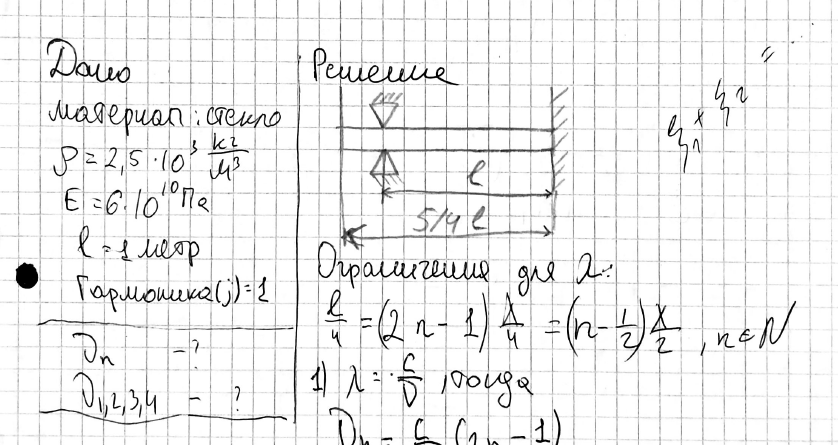 Дано
материал: стекло
ρ = 2,5 · 10³ кг/м³
E = 6 · 10¹⁰ Па
l = 1 метр
Гармоника (j) = 1
ν_n - ?
ν_1,2,3,4 - ?
Решение
l
5/4 l
Ограничения для λ:
l/4 = (2n - 1) λ/4 = (n - 1/2) λ/2 , n ∈ N
1) λ = c/ν , тогда
ν_n = c (2n - 1)